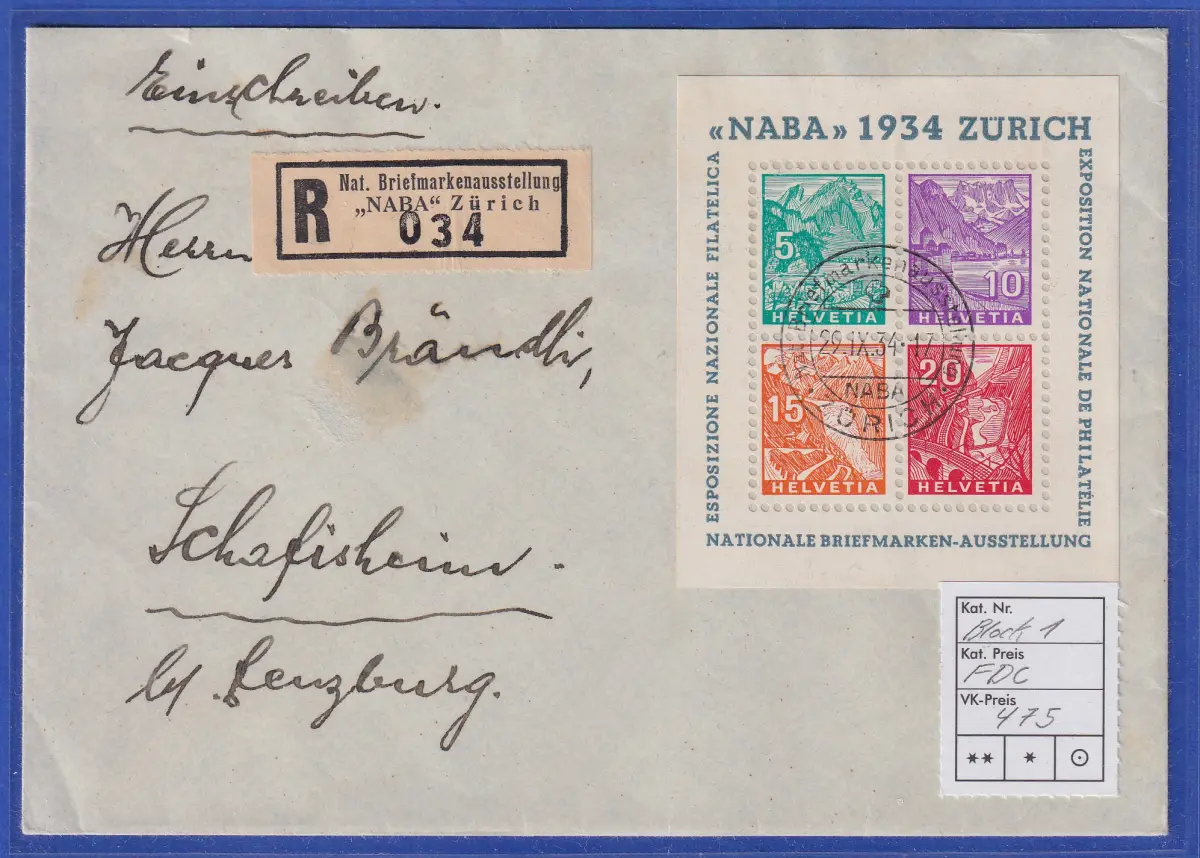 Einschreiben.
R
Nat. Briefmarkenausstellung
„NABA“ Zürich
034
Herrn
Jacques Brändli,
Schafisheim.
b/ Lenzburg.
«NABA» 1934 ZÜRICH
ESPOSIZIONE NAZIONALE FILATELICA
EXPOSITION NATIONALE DE PHILATÉLIE
NATIONALE BRIEFMARKEN-AUSSTELLUNG
5
HELVETIA
10
HELVETIA
15
HELVETIA
20
HELVETIA
Nat. Briefmarkenausstellung
29.IX.34-17
NABA
ZÜRICH
Kat. Nr.
Block 1
Kat. Preis
FDC
VK-Preis
475
** * ⊙